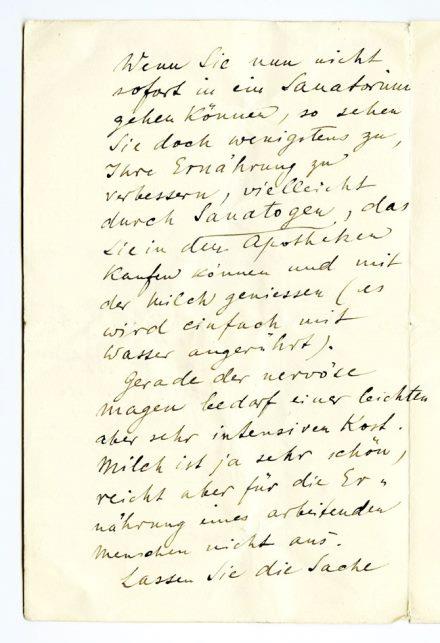 Wenn Sie nun nicht
sofort in ein Sanatorium
gehen können, so sehen
Sie doch wenigstens zu,
Ihre Ernährung zu
verbessern, vielleicht
durch Sanatogen, das
Sie in den Apotheken
kaufen können und mit
der Milch geniessen (es
wird einfach mit
Wasser angerührt).
Gerade der nervöse
Magen bedarf einer leichten
aber sehr intensiven Kost.
Milch ist ja sehr schön,
reicht aber für die Er-
nährung eines arbeitenden
Menschen nicht aus.
Lassen Sie die Sache